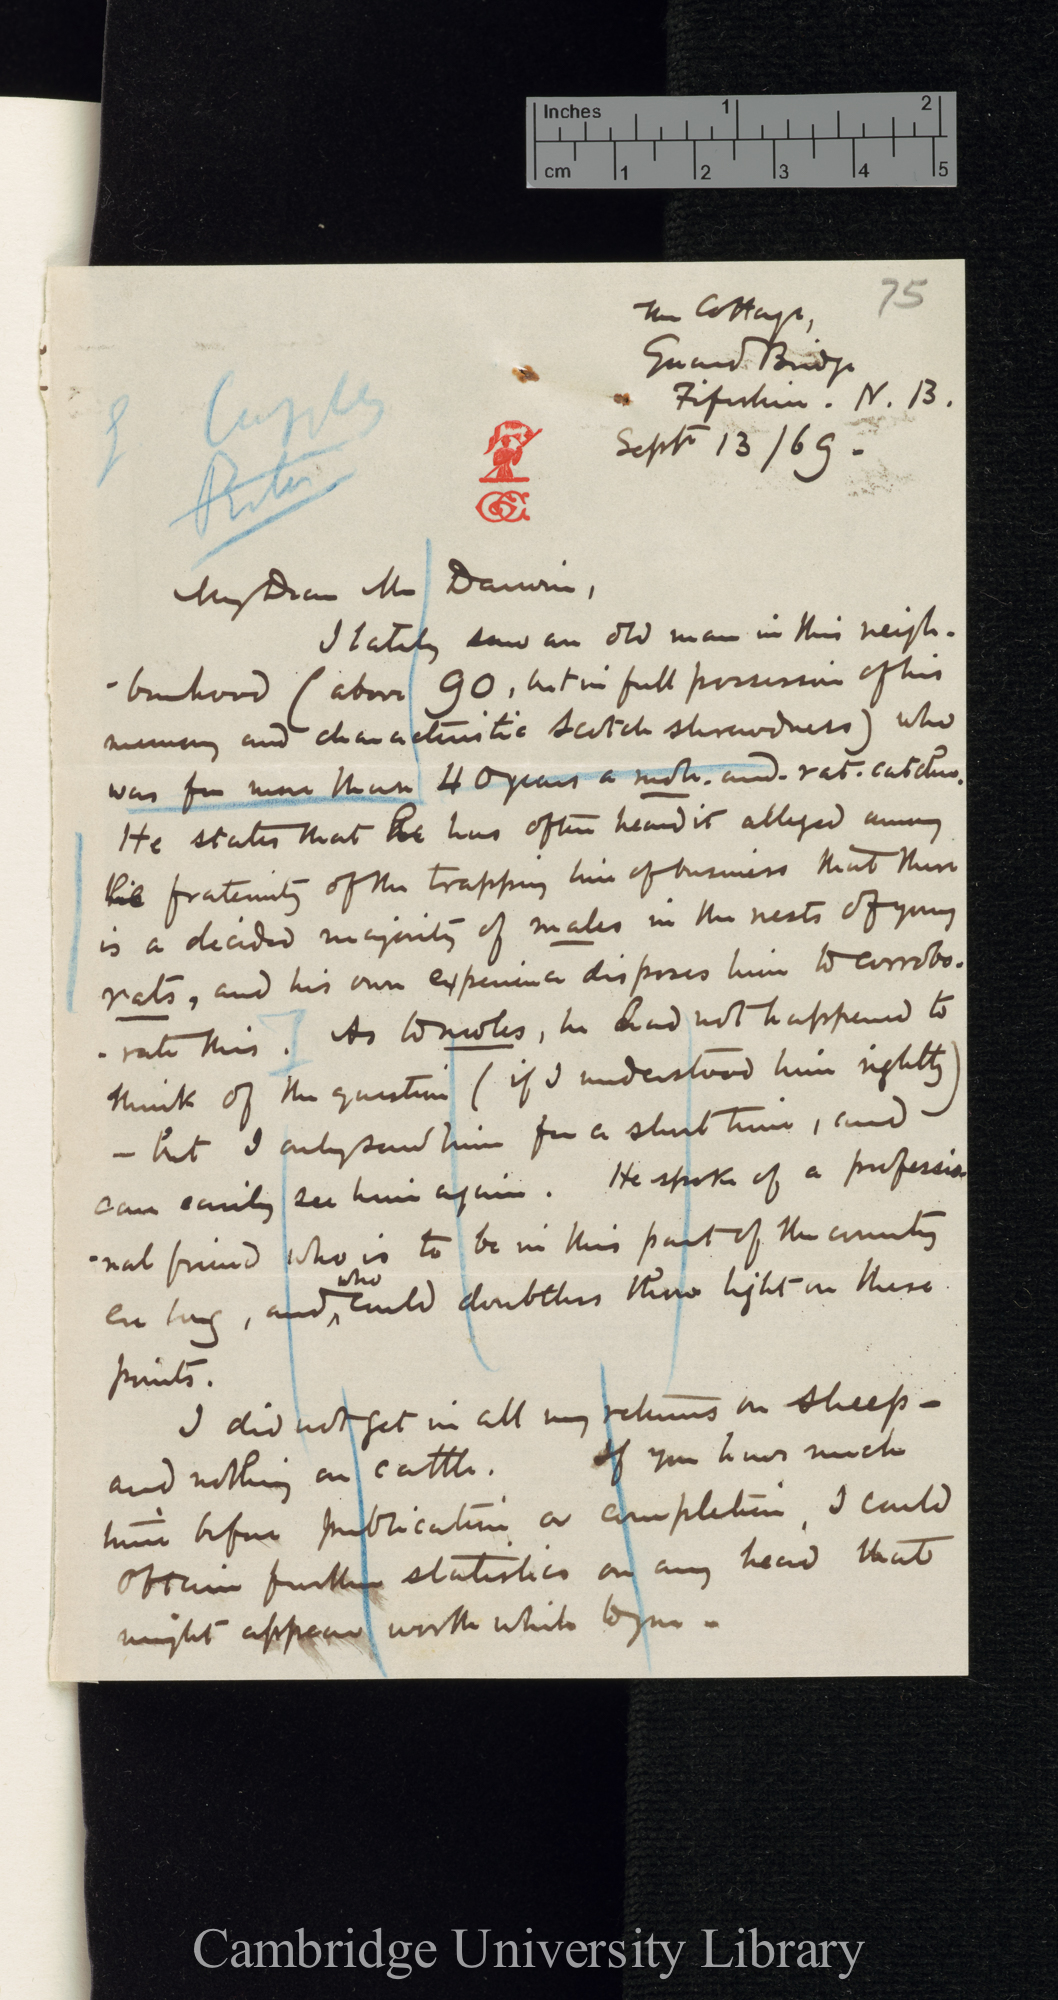 Inches 1 2
cm 1 2 3 4 5
75
The Cottage,
Guard Bridge
Fifeshire. N. B.
Septr 13/69.
Cupples
GC
My Dear Mr Darwin,
I lately saw an old man in this neigh-
-bourhood (above 90, but in full possession of his
memory and characteristic Scotch shrewdness) who
was for more than 40 years a mole-and-rat-catcher.
He states that he has often heard it alleged among
his fraternity of the trapping line of business that there
is a decided majority of males in the nests of young
rats, and his own experience disposes him to corrobo-
-rate this. As to moles, he had not happened to
think of the question (if I understood him rightly)
— but I only saw him for a short time, and
can easily see him again. He spoke of a professio-
-nal friend who is to be in this part of the country
ere long, and who could doubtless throw light on these
points.
I did not get in all my returns on sheep —
and nothing on cattle. If you have much
time before publication or completion, I could
obtain further statistics on any head that
might appear worth while to you —
Cambridge University Library